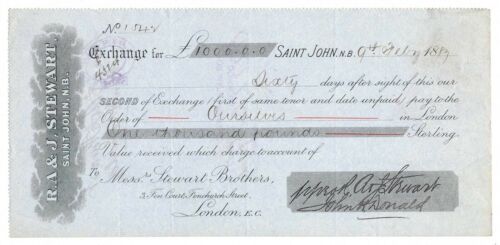 No 1542
Exchange for £1000.0.0 SAINT JOHN, N.B. 9th Feby 188
Sixty days after sight of this our
SECOND of Exchange (first of same tenor and date unpaid) pay to the
Order of Ourselves in London
One thousand pounds Sterling.
Value received which charge to account of
To Messrs Stewart Brothers,
3, Fen Court, Fenchurch Street,
London, E.C.
R.A. & J. STEWART
SAINT JOHN, N.B.
R A & J Stewart
John McDonald